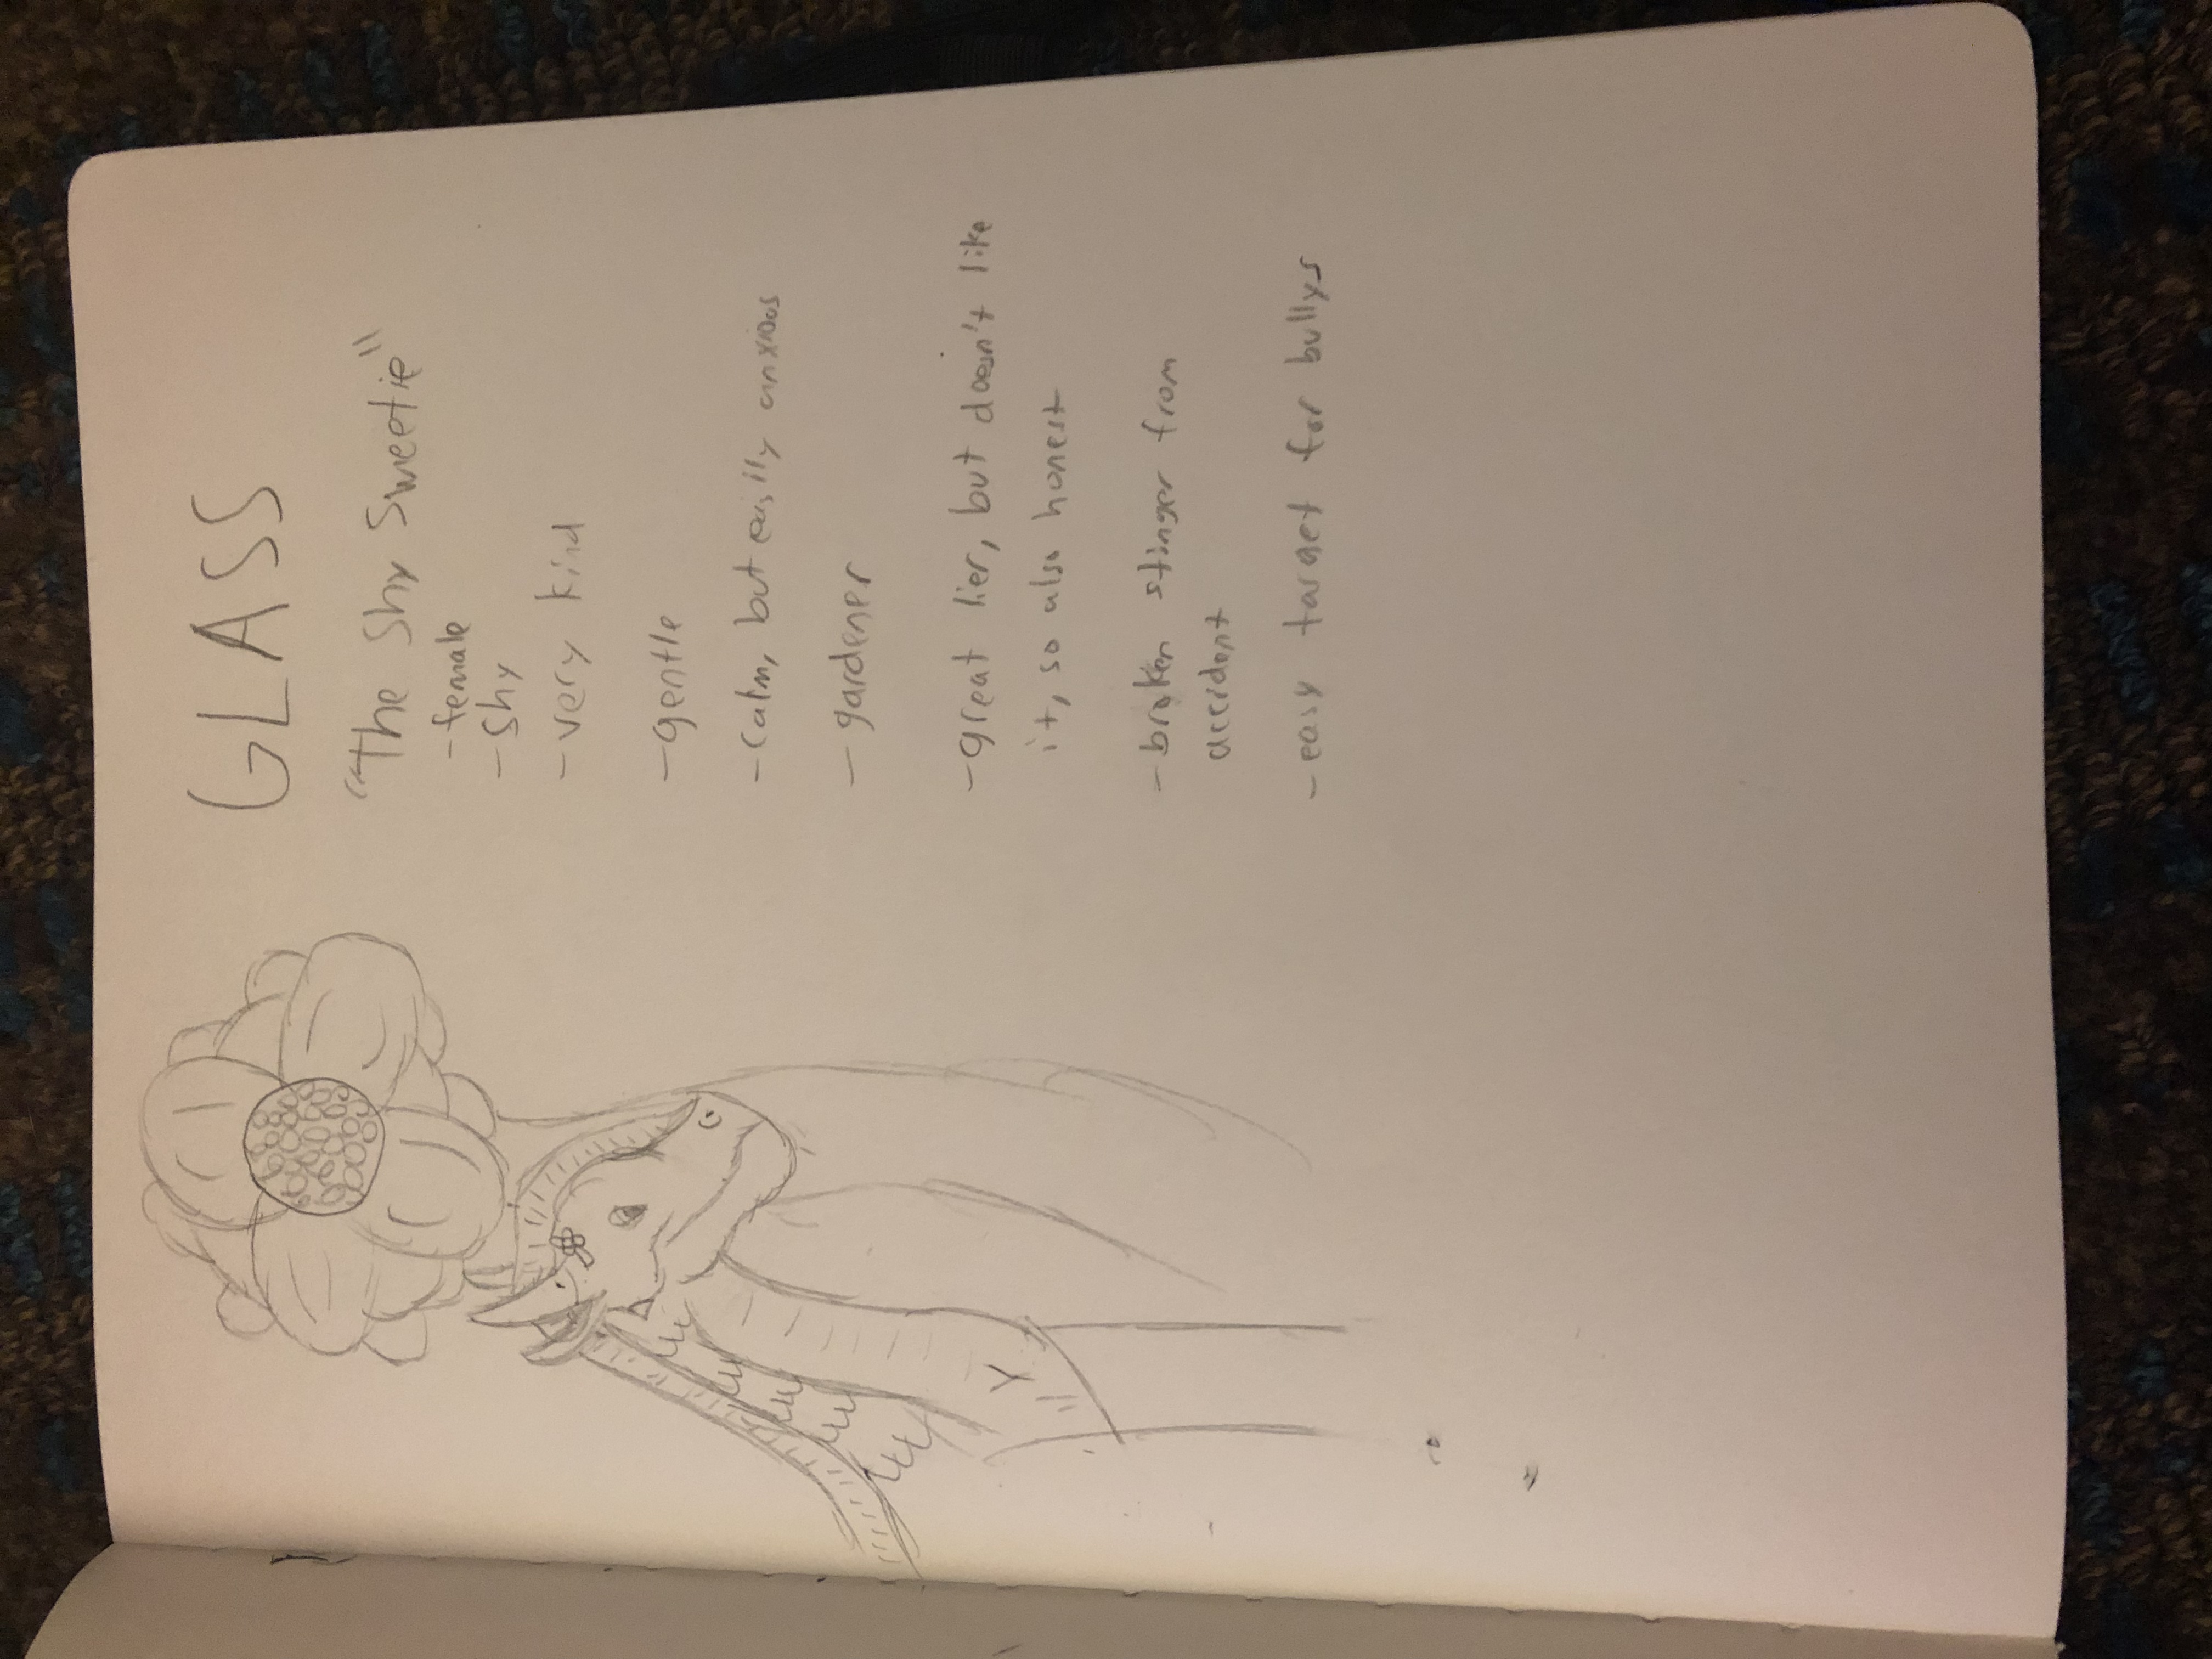 GLASS
"The Shy Sweetie"
-female
-shy
-very kind
-gentle
-calm, but easily anxious
-gardener
-great lier, but doesn't like
it, so also honest
-broken stinger from
accident
-easy target for bullys